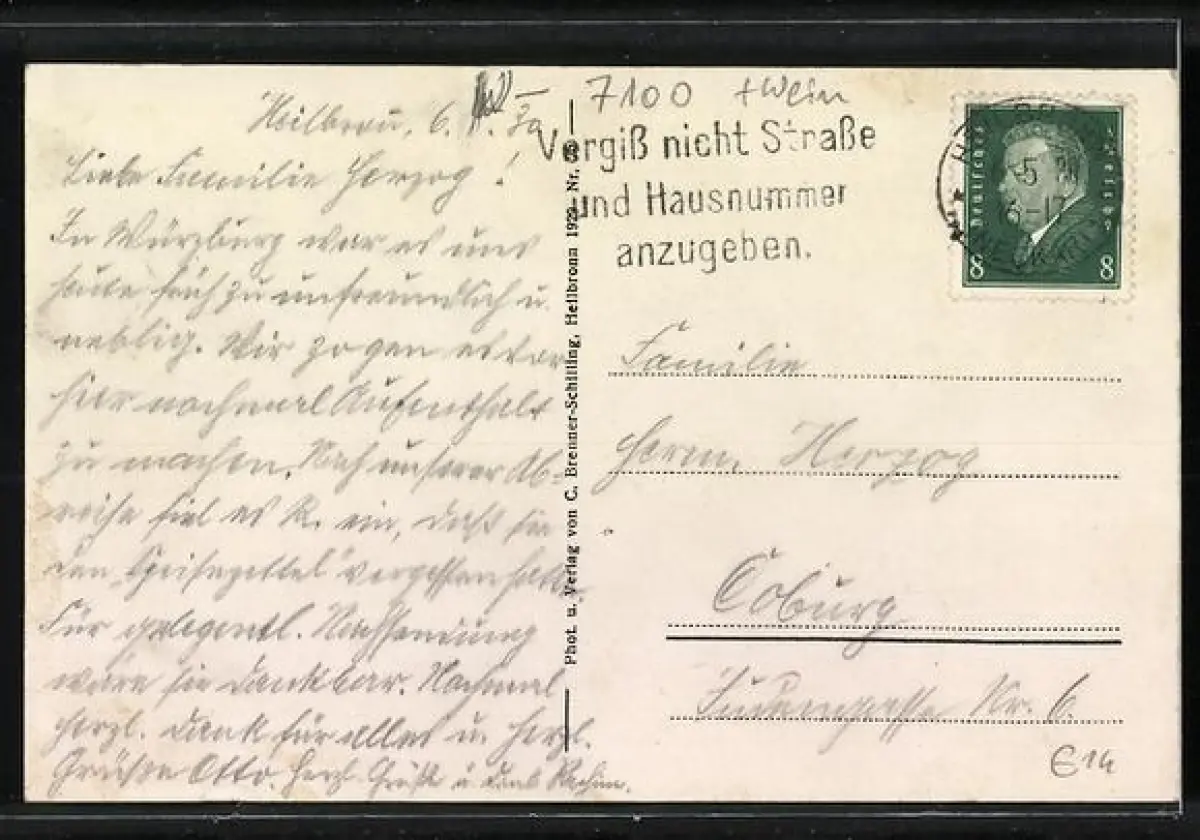 Heilbronn, 6. 30
Liebe Familie Herzog!
In Würzburg war es uns
heute früh zu unfreundlich u.
neblig. Wir zogen es vor
hier nochmal Aufenthalt
zu machen. Nach unserer Ab-
reise fiel es R. ein, daß sie
den "Speisezettel" vergessen hatte.
Für gelegentl. Nachsendung
wäre sie dankbar. Nochmal
herzl. Dank für alles u. herzl.
Grüße Otto. Herzl. Grüße u. Dank
Phot. u. Verlag von C. Brenner-Schilling, Heilbronn 1929 Nr.
7100 + Wein
Vergiß nicht Straße
und Hausnummer
anzugeben.
Deutsches Reich
8 8
Familie
Herrn Herzog
Coburg
Judengasse Nr. 6.
€14